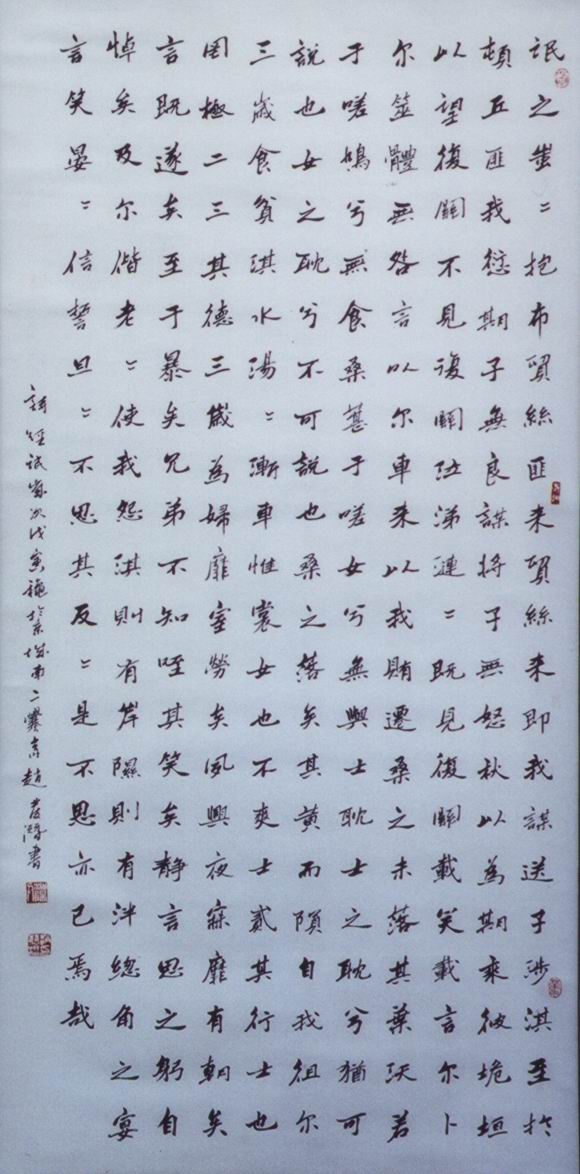 氓之蚩〻抱布貿絲匪来貿絲来即我謀送子涉淇至於
頓丘匪我愆期子無良謀将子無怒秋以為期乘彼垝垣
以望復關不見復關泣涕漣〻既見復關載笑載言尔卜
尔筮體無咎言以尔車来以我賄遷桑之未落其葉沃若
于嗟鳩兮無食桑葚于嗟女兮無與士耽士之耽兮猶可
說也女之耽兮不可說也桑之落矣其黄而隕自我徂尔
三歲食貧淇水湯〻漸車惟裳女也不爽士貳其行士也
罔極二三其德三歲為婦靡室勞矣夙興夜寐靡有朝矣
言既遂矣至于暴矣兄弟不知咥其笑矣静言思之躬自
悼矣及尔偕老〻使我怨淇則有岸隰則有泮總角之宴
言笑晏〻信誓旦〻不思其反〻是不思亦已焉哉
詩經氓歲次戊寅穐於京城南二爨趙書